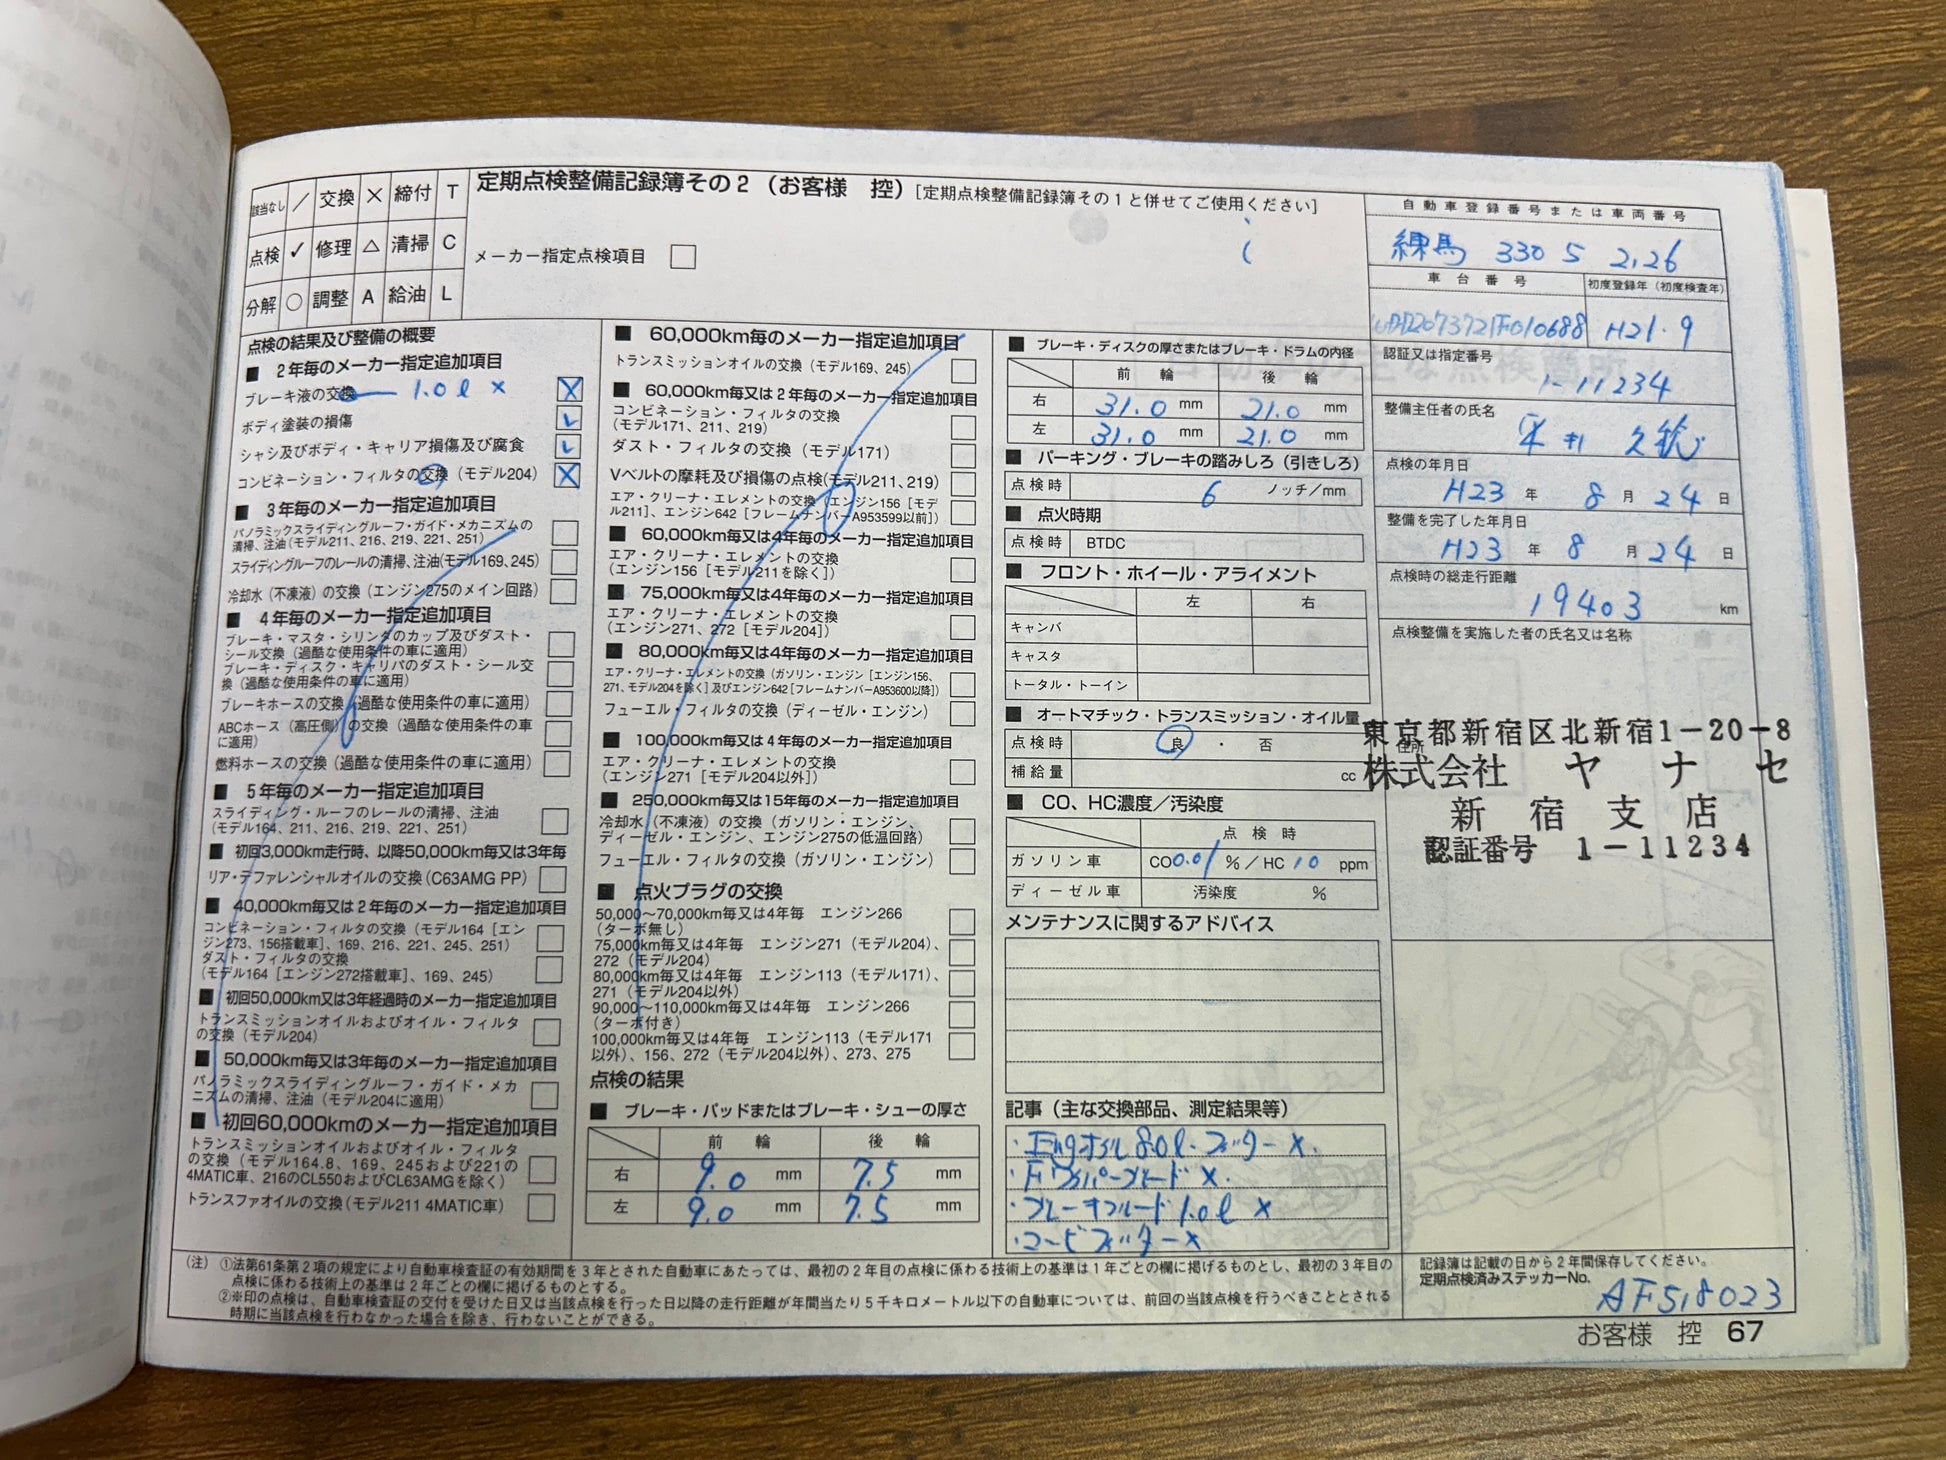 該当なし ／ 交換 × 締付 T
点検 ✓ 修理 △ 清掃 C
分解 ○ 調整 A 給油 L
定期点検整備記録簿その2（お客様 控）[定期点検整備記録簿その1と併せてご使用ください]
メーカー指定点検項目
点検の結果及び整備の概要
■ 2年毎のメーカー指定追加項目
ブレーキ液の交換 1.0ℓ × X
ボディ塗装の損傷 ✓
シャシ及びボディ・キャリア損傷及び腐食 ✓
コンビネーション・フィルタの交換（モデル204） X
■ 3年毎のメーカー指定追加項目
パノラミックスライディングルーフ・ガイド・メカニズムの
清掃、注油（モデル211、216、219、221、251）
スライディングルーフのレールの清掃、注油（モデル169、245）
冷却水（不凍液）の交換（エンジン275のメイン回路）
■ 4年毎のメーカー指定追加項目
ブレーキ・マスタ・シリンダのカップ及びダスト・
シール交換（過酷な使用条件の車に適用）
ブレーキ・ディスク・キャリパのダスト・シール交
換（過酷な使用条件の車に適用）
ブレーキホースの交換（過酷な使用条件の車に適用）
ABCホース（高圧側）の交換（過酷な使用条件の車
に適用）
燃料ホースの交換（過酷な使用条件の車に適用）
■ 5年毎のメーカー指定追加項目
スライディング・ルーフのレールの清掃、注油
（モデル164、211、216、219、221、251）
■ 初回3,000km走行時、以降50,000km毎又は3年毎
リア・デファレンシャルオイルの交換（C63AMG PP）
■ 40,000km毎又は2年毎のメーカー指定追加項目
コンビネーション・フィルタの交換（モデル164［エン
ジン273、156搭載車］、169、216、221、245、251）
ダスト・フィルタの交換
（モデル164［エンジン272搭載車］、169、245）
■ 初回50,000km又は3年経過時のメーカー指定追加項目
トランスミッションオイルおよびオイル・フィルタ
の交換（モデル204）
■ 50,000km毎又は3年毎のメーカー指定追加項目
パノラミックスライディングルーフ・ガイド・メカ
ニズムの清掃、注油（モデル204に適用）
■ 初回60,000kmのメーカー指定追加項目
トランスミッションオイルおよびオイル・フィルタ
の交換（モデル164.8、169、245および221の
4MATIC車、216のCL550およびCL63AMGを除く）
トランスファオイルの交換（モデル211 4MATIC車）
■ 60,000km毎のメーカー指定追加項目
トランスミッションオイルの交換（モデル169、245）
■ 60,000km毎又は2年毎のメーカー指定追加項目
コンビネーション・フィルタの交換
（モデル171、211、219）
ダスト・フィルタの交換（モデル171）
Vベルトの摩耗及び損傷の点検（モデル211、219）
エア・クリーナ・エレメントの交換（エンジン156［モデ
ル211］、エンジン642［フレームナンバーA953599以前］）
■ 60,000km毎又は4年毎のメーカー指定追加項目
エア・クリーナ・エレメントの交換
（エンジン156［モデル211を除く］）
■ 75,000km毎又は4年毎のメーカー指定追加項目
エア・クリーナ・エレメントの交換
（エンジン271、272［モデル204］）
■ 80,000km毎又は4年毎のメーカー指定追加項目
エア・クリーナ・エレメントの交換（ガソリン・エンジン［エンジン156、
271、モデル204を除く］及びエンジン642［フレームナンバーA953600以降］）
フューエル・フィルタの交換（ディーゼル・エンジン）
■ 100,000km毎又は4年毎のメーカー指定追加項目
エア・クリーナ・エレメントの交換
（エンジン271［モデル204以外］）
■ 250,000km毎又は15年毎のメーカー指定追加項目
冷却水（不凍液）の交換（ガソリン・エンジン、
ディーゼル・エンジン、エンジン275の低温回路）
フューエル・フィルタの交換（ガソリン・エンジン）
■ 点火プラグの交換
50,000～70,000km毎又は4年毎 エンジン266
（ターボ無し）
75,000km毎又は4年毎 エンジン271（モデル204）、
272（モデル204）
80,000km毎又は4年毎 エンジン113（モデル171）、
271（モデル204以外）
90,000～110,000km毎又は4年毎 エンジン266
（ターボ付き）
100,000km毎又は4年毎 エンジン113（モデル171
以外）、156、272（モデル204以外）、273、275
点検の結果
■ ブレーキ・パッドまたはブレーキ・シューの厚さ
前輪 後輪
右 9.0 mm 7.5 mm
左 9.0 mm 7.5 mm
■ ブレーキ・ディスクの厚さまたはブレーキ・ドラムの内径
前輪 後輪
右 31.0 mm 21.0 mm
左 31.0 mm 21.0 mm
■ パーキング・ブレーキの踏みしろ（引きしろ）
点検時 6 ノッチ/mm
■ 点火時期
点検時 BTDC
■ フロント・ホイール・アライメント
左 右
キャンバ
キャスタ
トータル・トーイン
■ オートマチック・トランスミッション・オイル量
点検時 良 ・ 否
補給量 cc
■ CO、HC濃度／汚染度
点検時
ガソリン車 CO 0.01 %／HC 10 ppm
ディーゼル車 汚染度 %
メンテナンスに関するアドバイス
記事（主な交換部品、測定結果等）
・Engオイル 8.0ℓ・フィルター ×.
・Fワイパーブレード ×.
・ブレーキフルード 1.0ℓ ×
・コンビフィルター ×
自動車登録番号または車両番号
練馬 330 5 2,26
車台番号 初度登録年（初度検査年）
WDD2073721F010688 H21.9
認証又は指定番号
1-11234
整備主任者の氏名
点検の年月日
H23 年 8 月 24 日
整備を完了した年月日
H23 年 8 月 24 日
点検時の総走行距離
19403 km
点検整備を実施した者の氏名又は名称
住所
東京都新宿区北新宿1-20-8
株式会社 ヤナセ
新宿支店
認証番号 1-11234
記録簿は記載の日から2年間保存してください。
定期点検済みステッカーNo.
AF518023
（注） ①法第61条第2項の規定により自動車検査証の有効期間を3年とされた自動車にあたっては、最初の2年目の点検に係わる技術上の基準は1年ごとの欄に掲げるものとし、最初の3年目の
点検に係わる技術上の基準は2年ごとの欄に掲げるものとする。
②※印の点検は、自動車検査証の交付を受けた日又は当該点検を行った日以降の走行距離が年間当たり5千キロメートル以下の自動車については、前回の当該点検を行うべきこととされる
時期に当該点検を行わなかった場合を除き、行わないことができる。
お客様 控 67